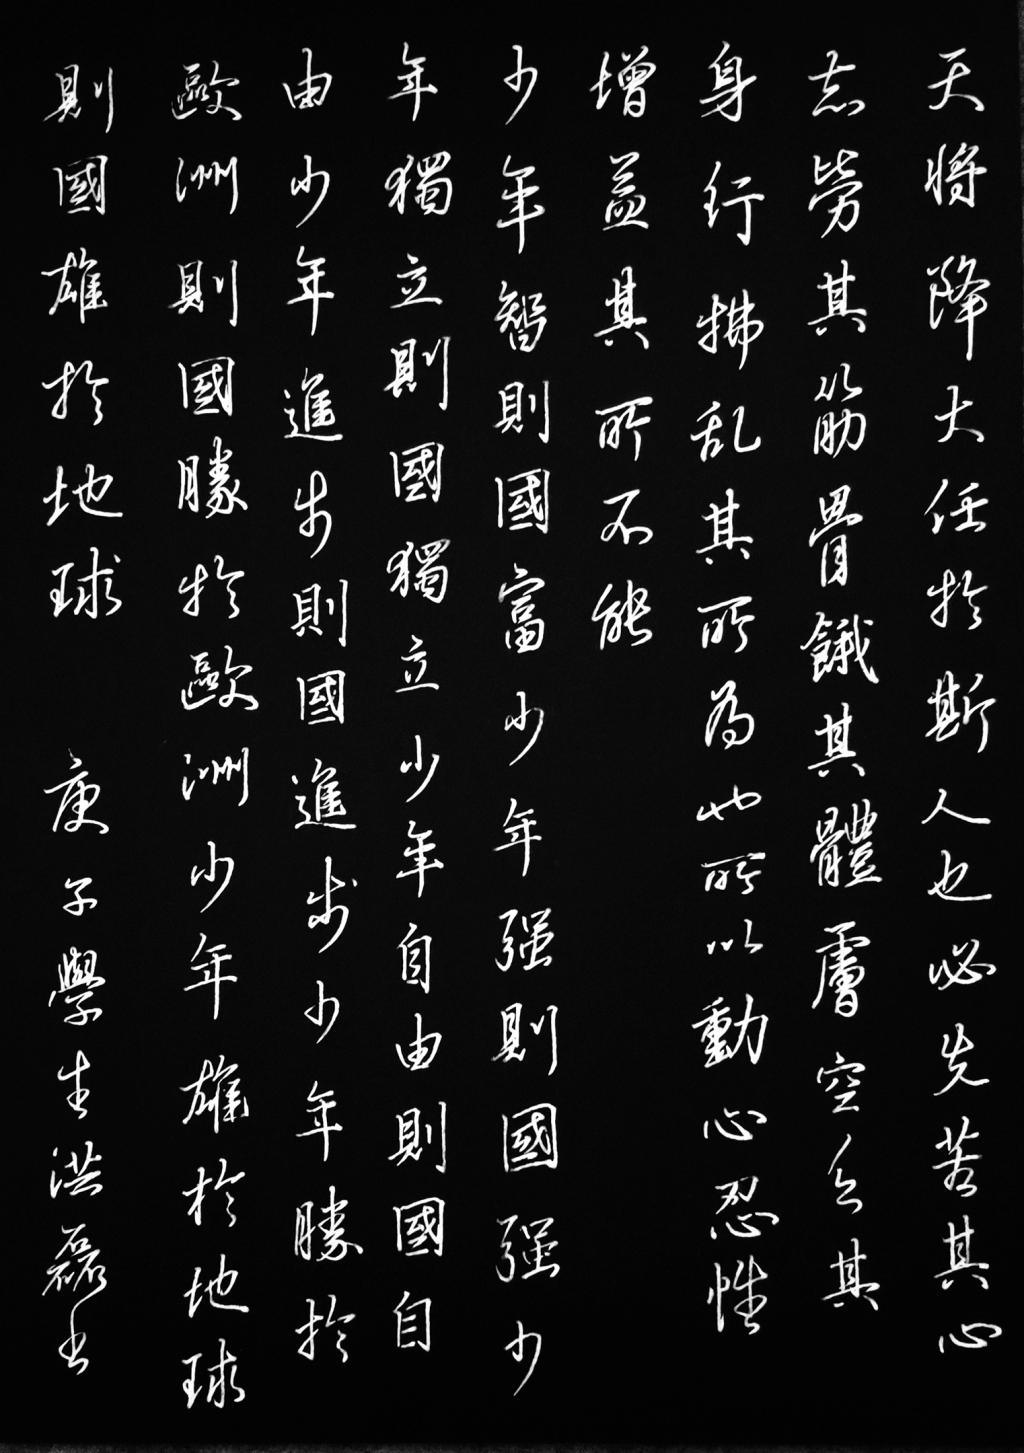 天将降大任於斯人也必先苦其心
志勞其筋骨餓其體膚空乏其
身行拂乱其所為也所以動心忍性
增益其所不能
少年智則國富少年强則國强少
年獨立則國獨立少年自由則國自
由少年進步則國進步少年勝於
歐洲則國勝於歐洲少年雄於地球
則國雄於地球 庚子學生洪磊书